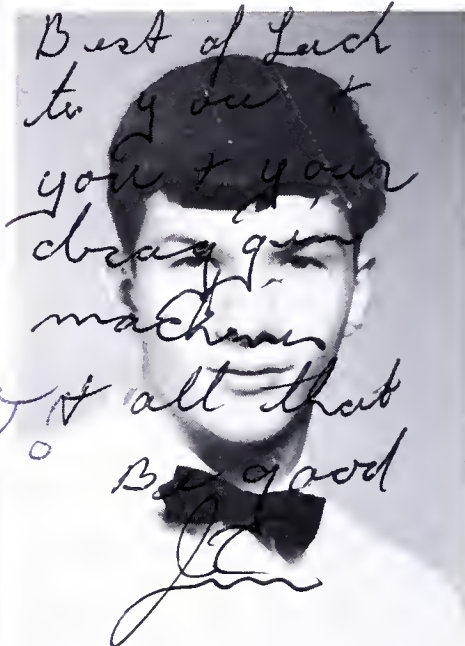 Best of Luck
to you +
you + your
draggin
machines
+ all that
Be good
Jim